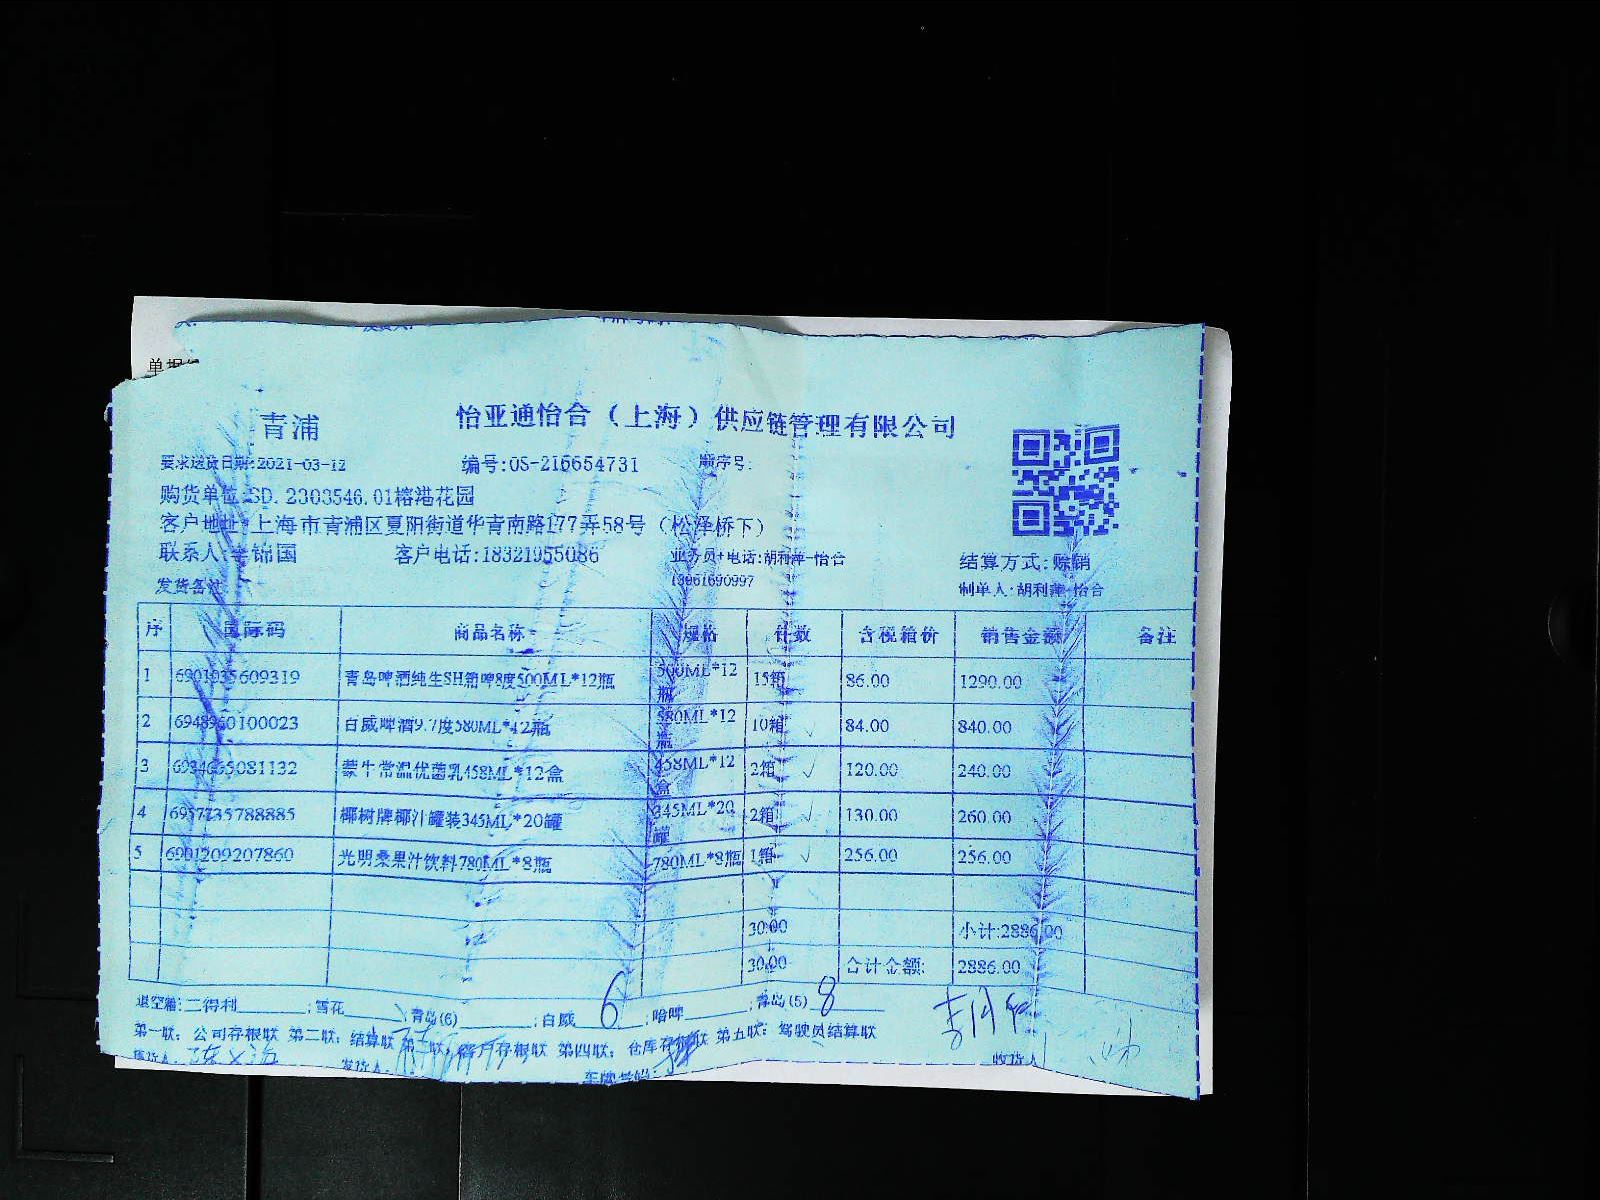 单据
青浦
怡亚通怡合（上海）供应链管理有限公司
要求送货日期:2021-03-12 编号:OS-216654731 顺序号:
购货单位:SD.2303546.01榕港花园
客户地址:上海市青浦区夏阳街道华青南路177弄58号（松泽桥下）
联系人:李锦国 客户电话:18321955086 业务员+电话:胡利萍-怡合 结算方式:赊销
13961690997
发货备注: 制单人:胡利萍-怡合
序 国际码 商品名称 规格 件数 含税箱价 销售金额 备注
1 6901035609319 青岛啤酒纯生SH箱啤8度500ML*12瓶 500ML*12瓶 15箱 86.00 1290.00
2 6948960100023 百威啤酒9.7度580ML*12瓶 580ML*12瓶 10箱 ✓ 84.00 840.00
3 6934665081132 蒙牛常温优菌乳458ML*12盒 458ML*12盒 2箱 ✓ 120.00 240.00
4 6957735788885 椰树牌椰汁罐装345ML*20罐 345ML*20罐 2箱 ✓ 130.00 260.00
5 6901209207860 光明桑果汁饮料780ML*8瓶 780ML*8瓶 1箱 ✓ 256.00 256.00
30.00 小计:2886.00
30.00 合计金额: 2886.00
退空箱:二得利________;雪花________;青岛(6)________;百威 6 ;哈啤________;青岛(5) 8
第一联：公司存根联 第二联：结算联 第三联：客户存根联 第四联：仓库存根联 第五联：驾驶员结算联
发货人: 车牌号码: 收货人